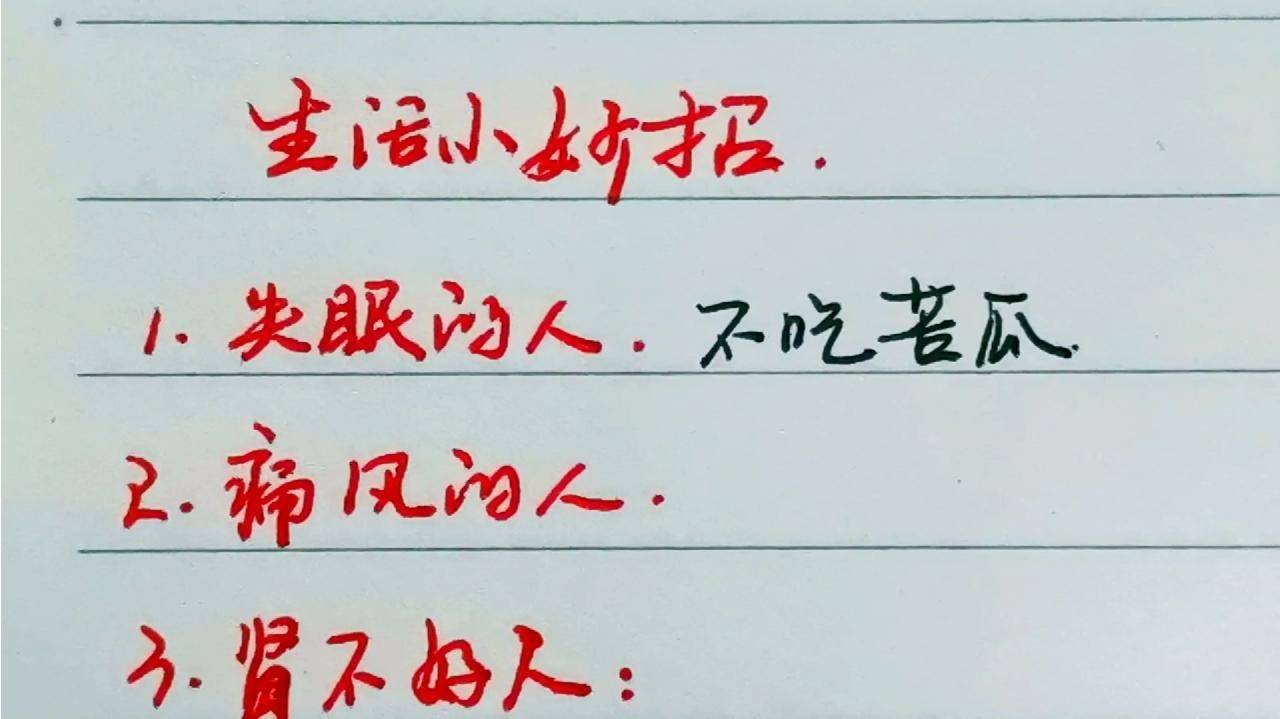 生活小妙招.
1. 失眠的人. 不吃苦瓜.
2. 痛风的人.
3. 肾不好人: